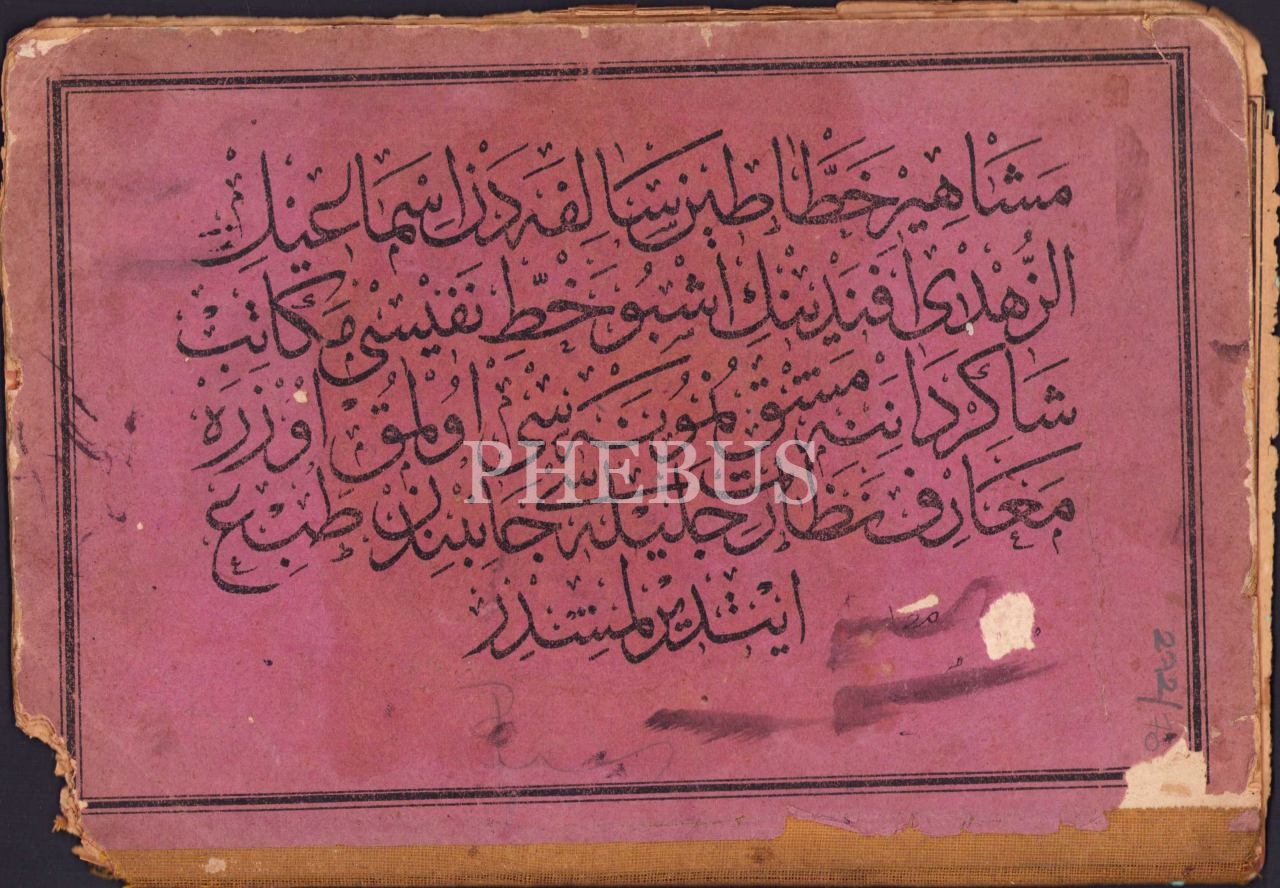 مشاهير خطاطين سالفه دن اسماعيل
الزهدى افندينك اشبو خط نفيسى مكاتب
شاكرداننه مشق نمونه سى اولمق اوزره
معارف نظارت جليله سى جانبندن طبع
ايتديرلمشدر
PHEBUS
272/10